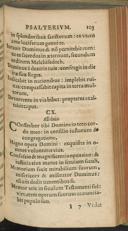 PSALTERIVM. 103
in splendoribus sanctorum: ex vtero
ante luciferum genui te.
Iurauit Dominus & non pœnitebit eum:
tu es sacerdos in æternum, secundum
ordinem Melchisedech.
Dominus à dextris tuis: confregit in die
iræ suæ Reges.
Iudicabit in nationibus: implebit rui-
nas: conquassabit capita in terra mul-
torum.
De torrente in via bibet: propterea exal-
tabit caput.
CX.
Alleluia.
Confitebor tibi Domine in toto cor-
de meo: in consilio iustorum &
congregatione.
Magna opera Domini: exquisita in o-
mnes voluntates eius.
Confessio & magnificentia opus eius: &
iustitia eius manet in sæculum sæculi.
Memoriam fecit mirabilium suorum,
misericors & miserator Dominus:
escam dedit timentibus se.
Memor erit in sæculum Testamenti sui:
virtutem operum suorum annuncia-
bit populo suo.